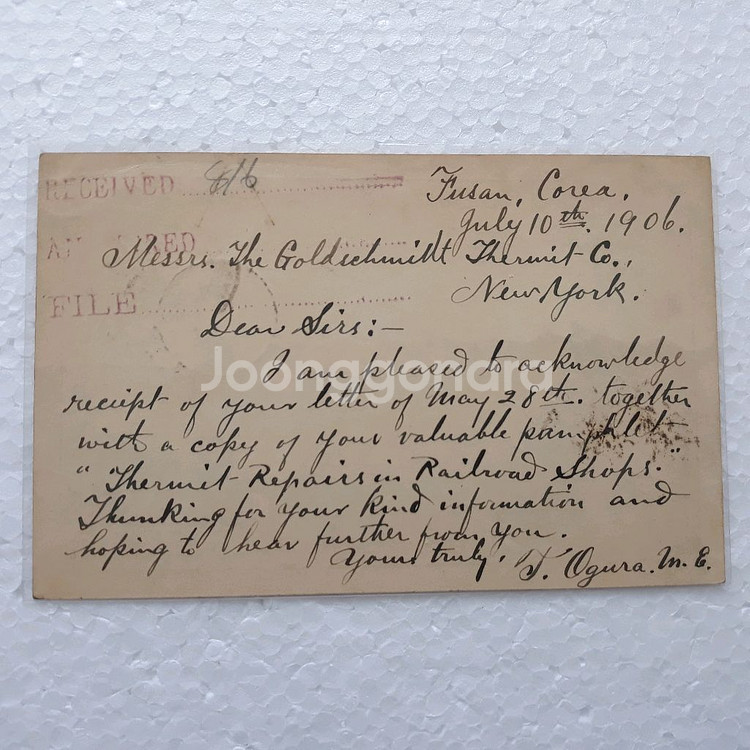 RECEIVED 8/6
Fusan, Corea.
July 10th. 1906.
FILE
Messrs. The Goldschmidt Thermit Co.,
New York.
Dear Sirs:—
I am pleased to acknowledge
receipt of your letter of May 28th. together
with a copy of your valuable pamphlet
"Thermit Repairs in Railroad Shops."
Thanking for your kind information and
hoping to hear further from you.
Yours truly, T. Ogura. M. E.
Joonggonara